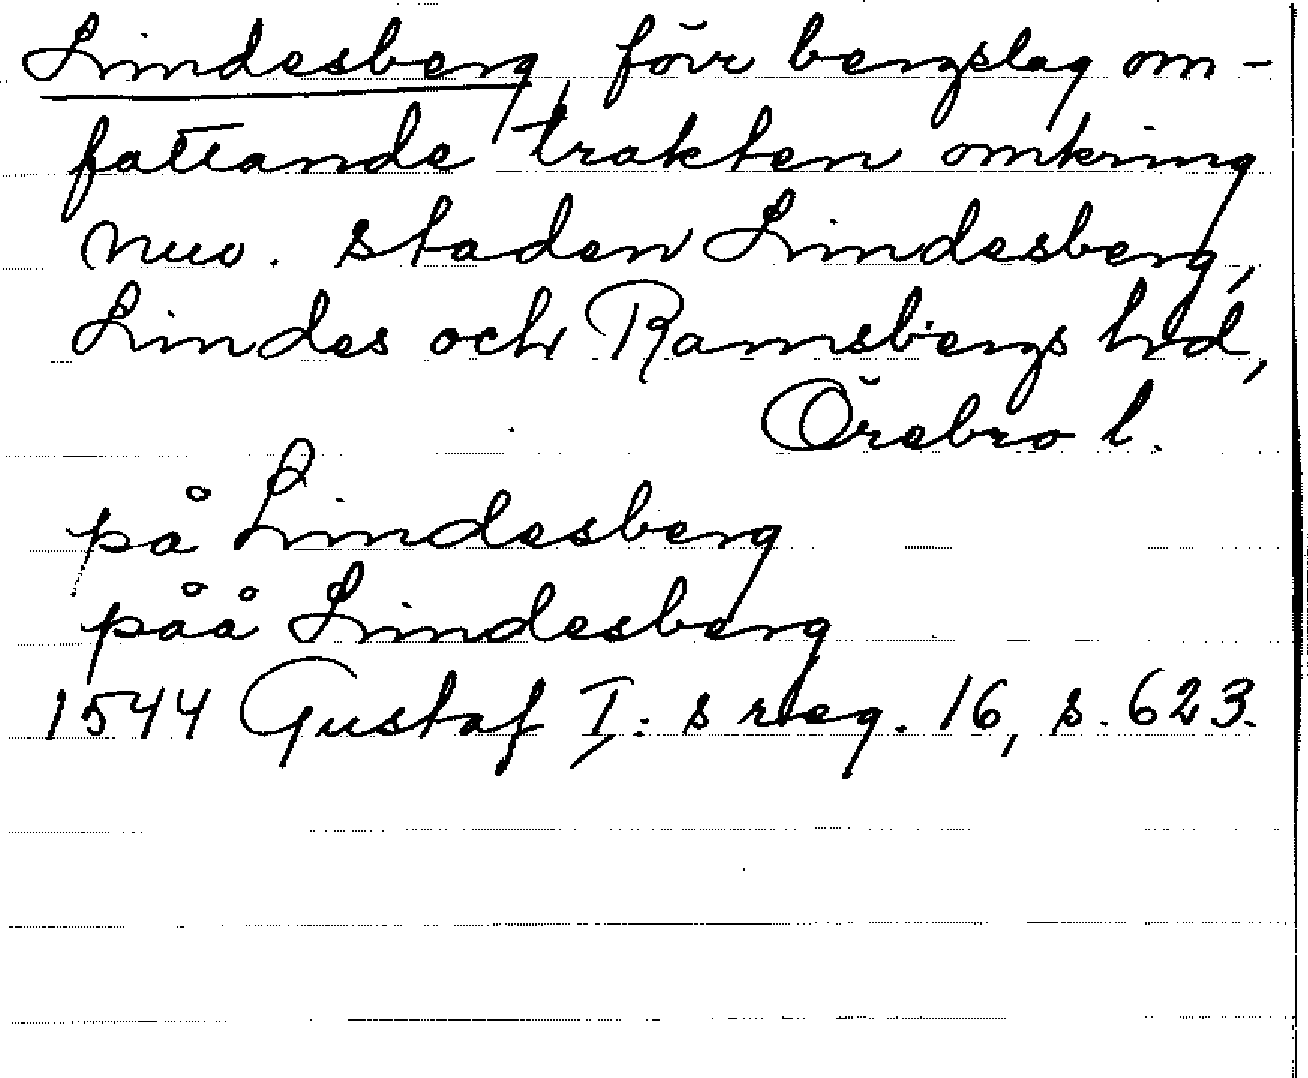 Lindesberg, förr bergslag om-
fattande trakten omkring
nuv. staden Lindesberg,
Lindes och Ramsbergs hrd,
Örebro l.
på Lindesberg
påå Lindesberg
1544 Gustaf I:s reg. 16, s. 623.